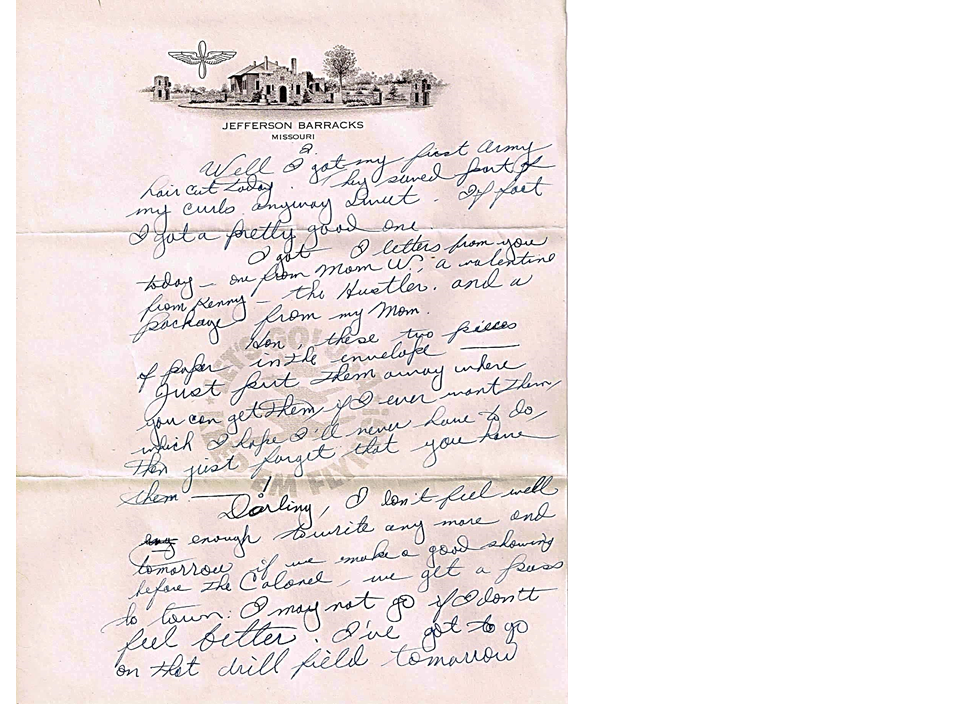 JEFFERSON BARRACKS
MISSOURI
2.
Well I got my first Army
hair cut today. They saved part of
my curls anyway Sweet. If fact
I got a pretty good one
I got 2 letters from you
today — one from Mom W., a valentine
from Kenny — the Hustler. and a
package from my Mom.
Hon, these two pieces
of paper in the envelope —
Just put them away where
you can get them if I ever want them,
which I hope I'll never have to do,
then just forget that you have
them. —!
Darling, I don't feel well
enough to write any more and
tomorrow if we make a good showing
before the Colonel, we get a pass
to town. I may not go if I don't
feel better. I've got to go
on that drill field tomorrow
LET'S GO! U.S.A.
KEEP 'EM FLYING!